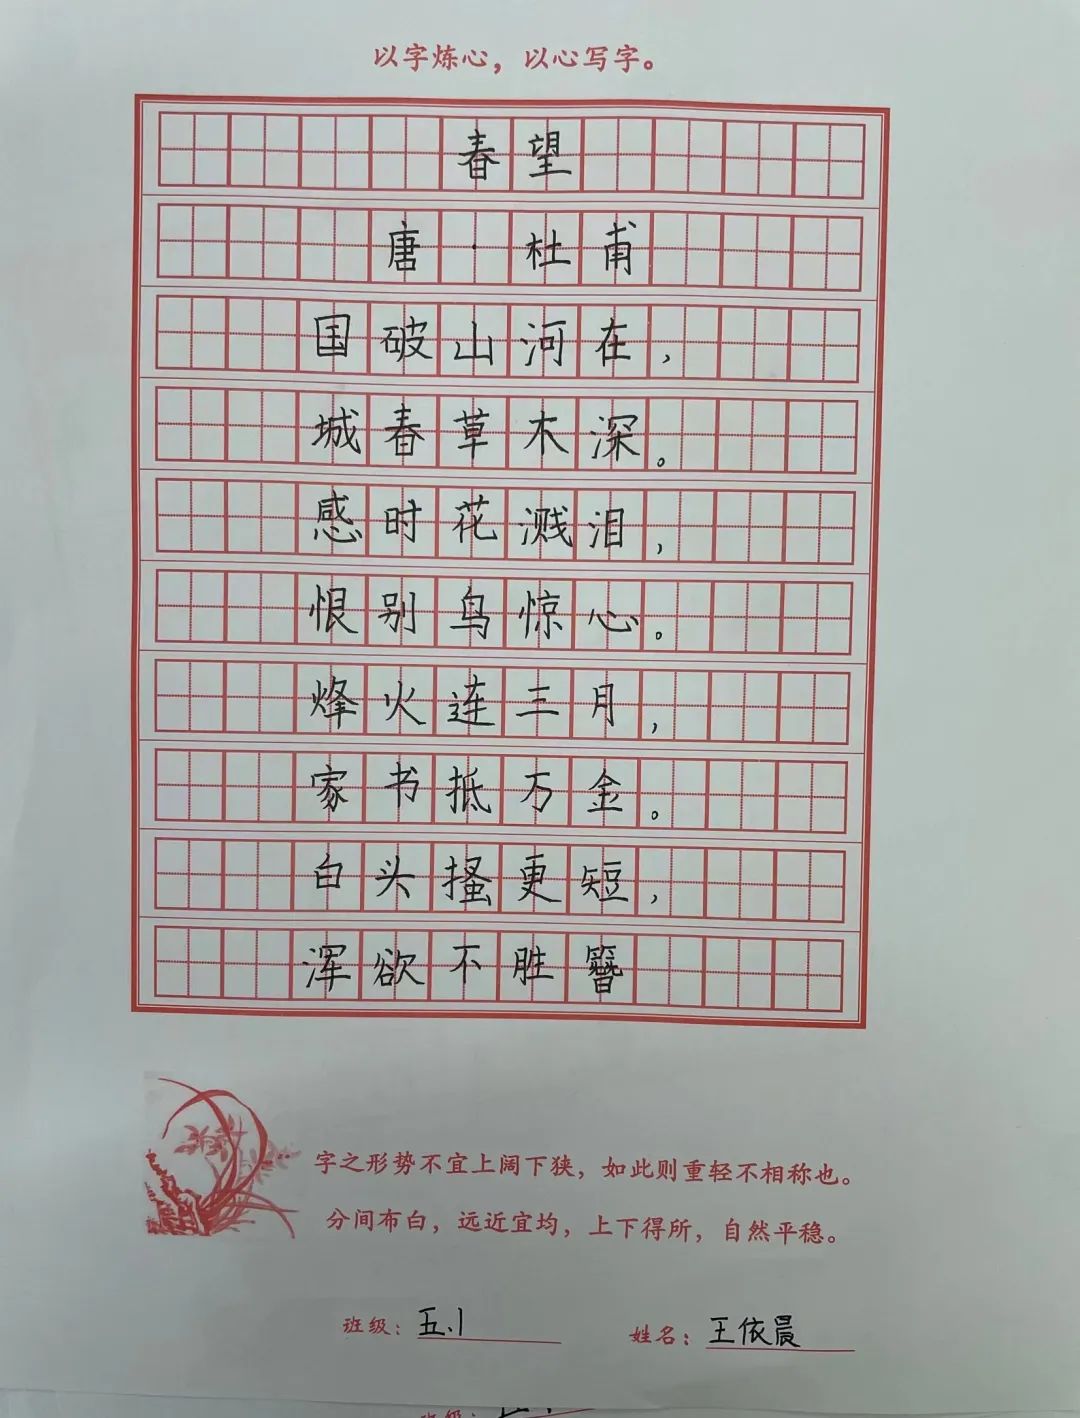 以字炼心，以心写字。
春望
唐·杜甫
国破山河在，
城春草木深。
感时花溅泪，
恨别鸟惊心。
烽火连三月，
家书抵万金。
白头搔更短，
浑欲不胜簪
字之形势不宜上阔下狭，如此则重轻不相称也。
分间布白，远近宜均，上下得所，自然平稳。
班级：五.1 姓名：王依晨